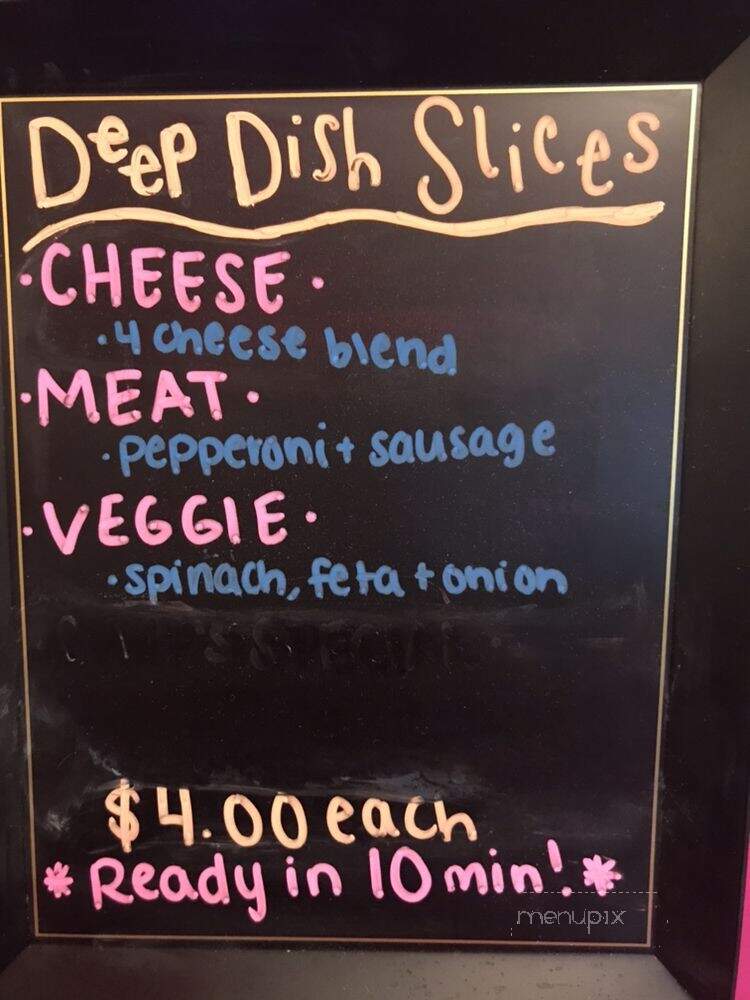 Deep Dish Slices
·CHEESE·
·4 cheese blend
·MEAT·
·pepperoni + sausage
·VEGGIE·
·spinach, feta + onion
$4.00 each
*Ready in 10 min!*
menupix